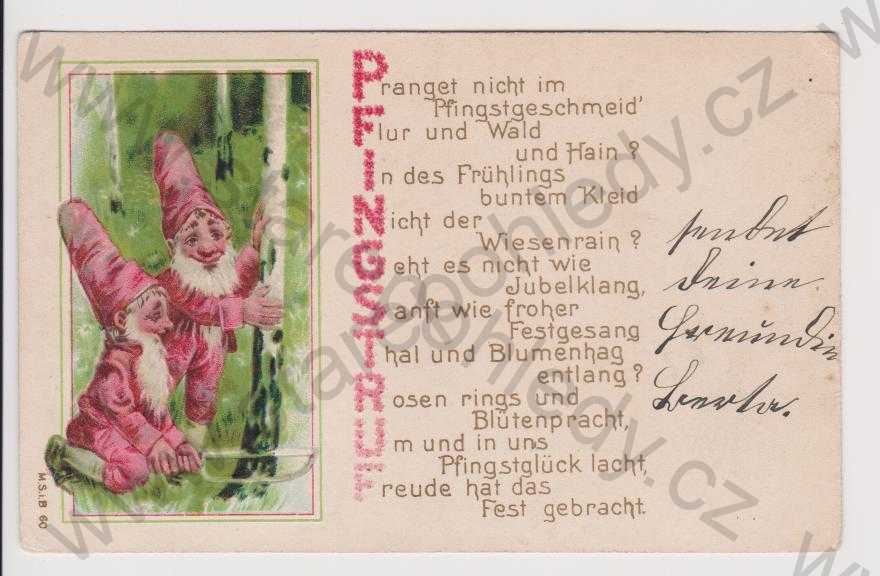 Pranget nicht im
Pfingstgeschmeid'
Flur und Wald
und Hain?
In des Frühlings
buntem Kleid
Nicht der
Wiesenrain?
Geht es nicht wie
Jubelklang,
Sanft wie froher
Festgesang
Thal und Blumenhag
entlang?
Rosen rings und
Blütenpracht,
Um und in uns
Pfingstglück lacht,
Freude hat das
Fest gebracht.
sendet
deine
Freundin
Berta.
M.S.i.B. 60
www.starepohledy.cz